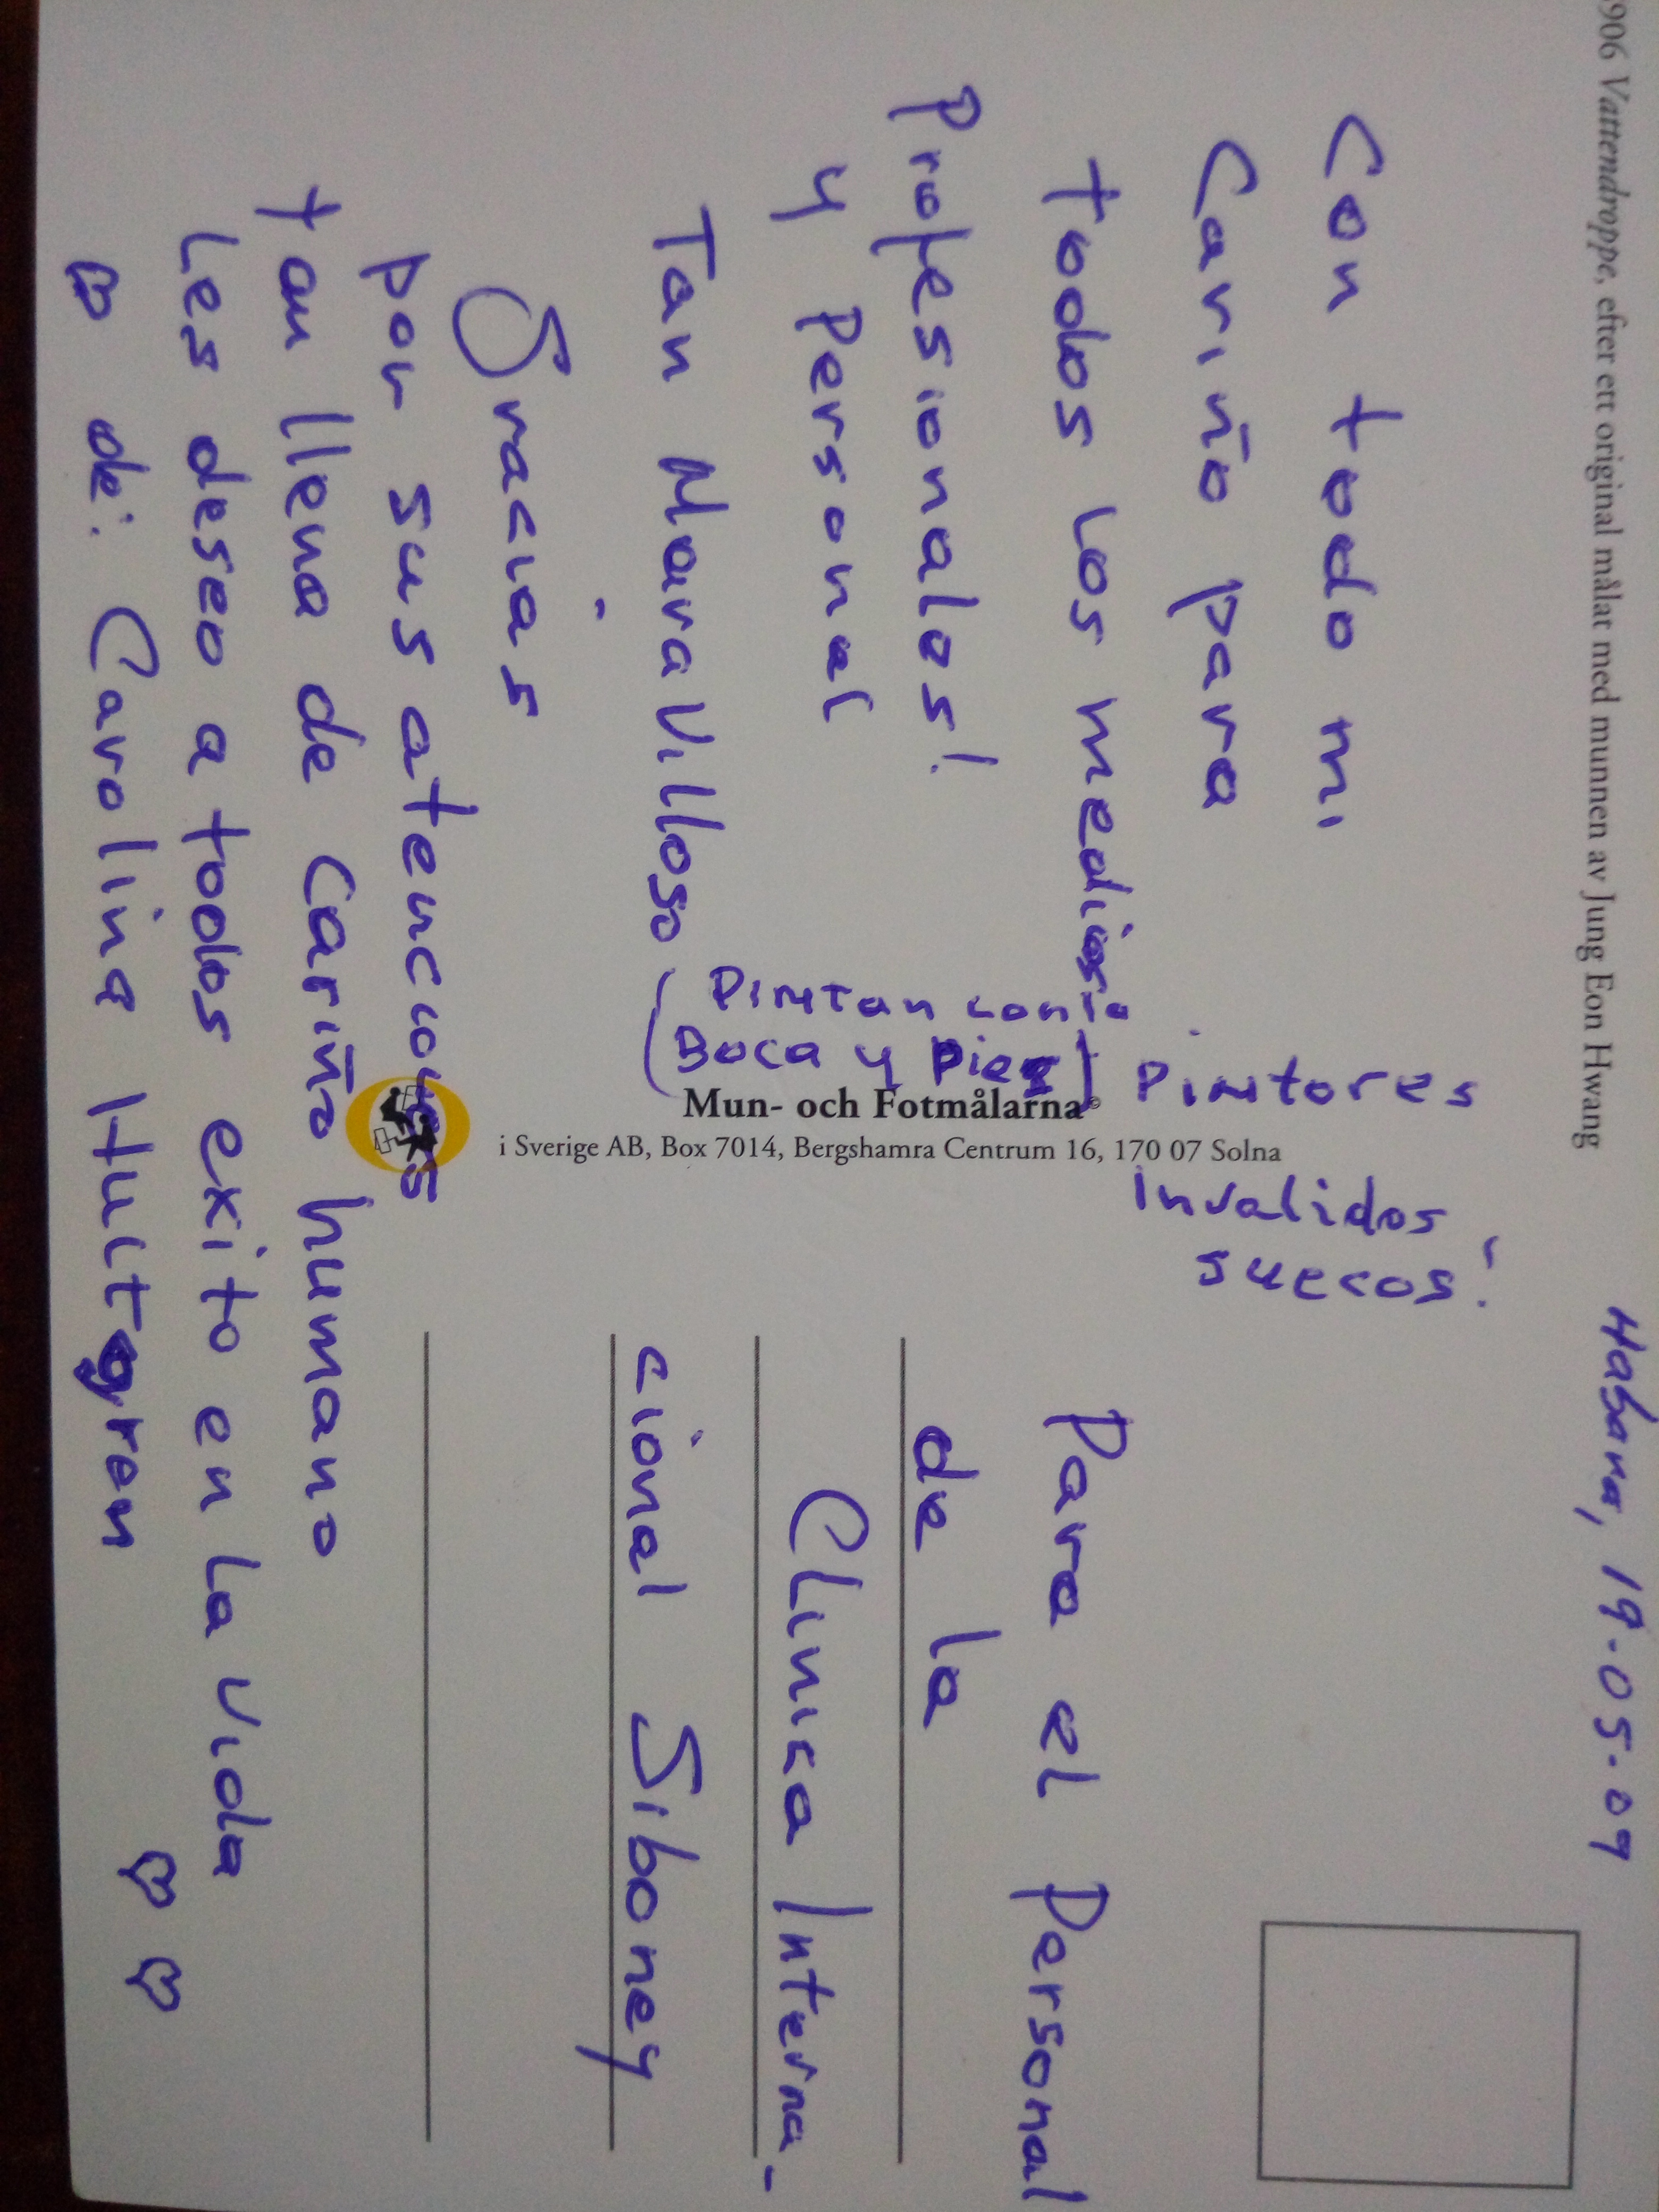 906 Vattendroppe, efter ett original målat med munnen av Jung Eon Hwang
Habana, 19.05.09
Con todo mi
Cariño para
todos los medios
Profesionales!
y Personal
Tan Maravilloso
Gracias
por sus atenciones
tan llena de Cariño humano
Les deseo a todos exito en la vida
de: Carolina Hultgren
Pintan con la
Boca y pies
Pintores
Invalidos
suecos!
Mun- och Fotmålarna©
i Sverige AB, Box 7014, Bergshamra Centrum 16, 170 07 Solna
Para el Personal
de la
Clinica Interna-
cional Siboney